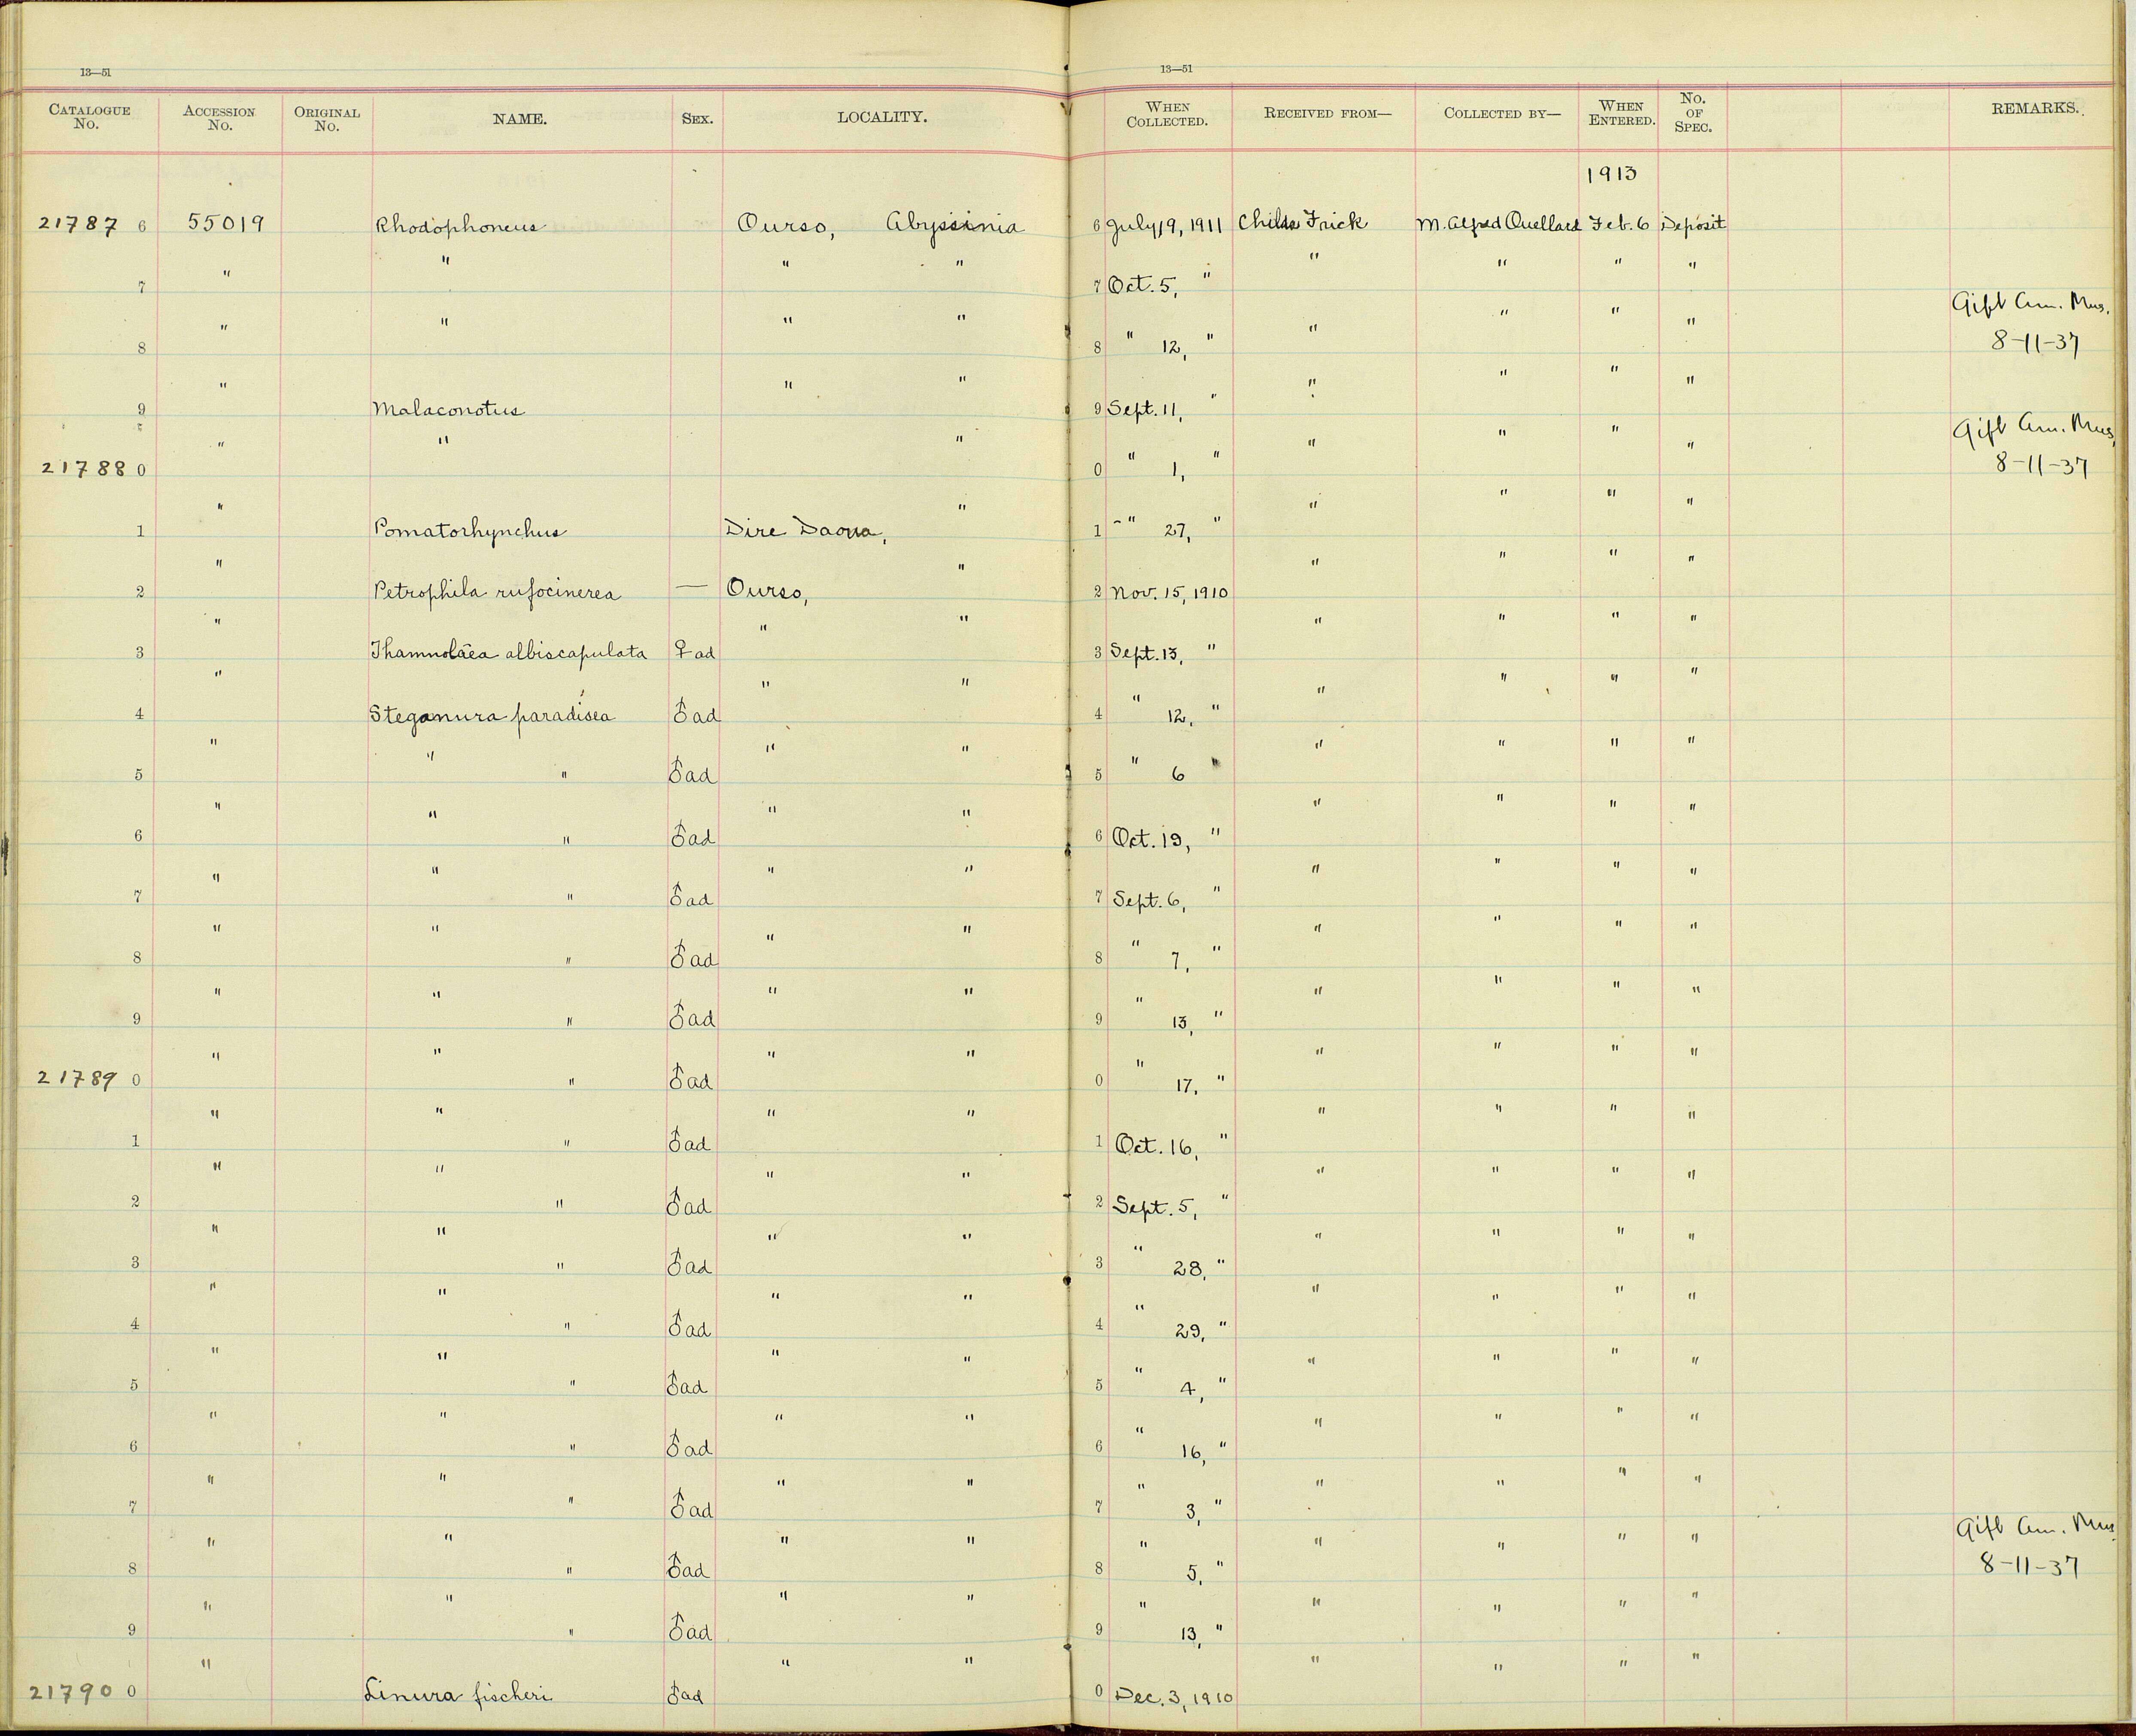 13—51
13—51
CATALOGUE No. ACCESSION No. ORIGINAL No. NAME. SEX. LOCALITY. WHEN COLLECTED. RECEIVED FROM— COLLECTED BY— WHEN ENTERED. No. OF SPEC. REMARKS.
1913
21787 6 55019 Rhodophoneus Ourso, Abyssinia 6 July 19, 1911 Childs Frick M. Alfred Ouellard Feb. 6 Deposit
7 " " " " 7 Oct. 5, " " " " "
8 " " " " 8 " 12, " " " " " Gift Am. Mus. 8-11-37
9 " Malaconotus " " 9 Sept. 11, " " " " "
21788 0 " " " 0 " 1, " " " " " Gift Am. Mus. 8-11-37
1 " Pomatorhynchus Dire Daoua, " 1 " 27, " " " " "
2 " Petrophila rufocinerea — Ourso, " 2 Nov. 15, 1910 " " " "
3 " Thamnolaea albiscapulata ♀ ad " " 3 Sept. 13, " " " " "
4 " Steganura paradisea ♂ ad " " 4 " 12, " " " " "
5 " " " ♂ ad " " 5 " 6 " " " " "
6 " " " ♂ ad " " 6 Oct. 19, " " " " "
7 " " " ♂ ad " " 7 Sept. 6, " " " " "
8 " " " ♂ ad " " 8 " 7, " " " " "
9 " " " ♂ ad " " 9 " 13, " " " " "
21789 0 " " " ♂ ad " " 0 " 17, " " " " "
1 " " " ♂ ad " " 1 Oct. 16, " " " " "
2 " " " ♂ ad " " 2 Sept. 5, " " " " "
3 " " " ♂ ad " " 3 " 28, " " " " "
4 " " " ♂ ad " " 4 " 29, " " " " "
5 " " " ♂ ad " " 5 " 4, " " " " "
6 " " " ♂ ad " " 6 " 16, " " " " "
7 " " " ♂ ad " " 7 " 3, " " " " "
8 " " " ♂ ad " " 8 " 5, " " " " " Gift Am. Mus. 8-11-37
9 " " " ♂ ad " " 9 " 13, " " " " "
21790 0 " Linura fischeri ♂ ad " " 0 Dec. 3, 1910 " " " "